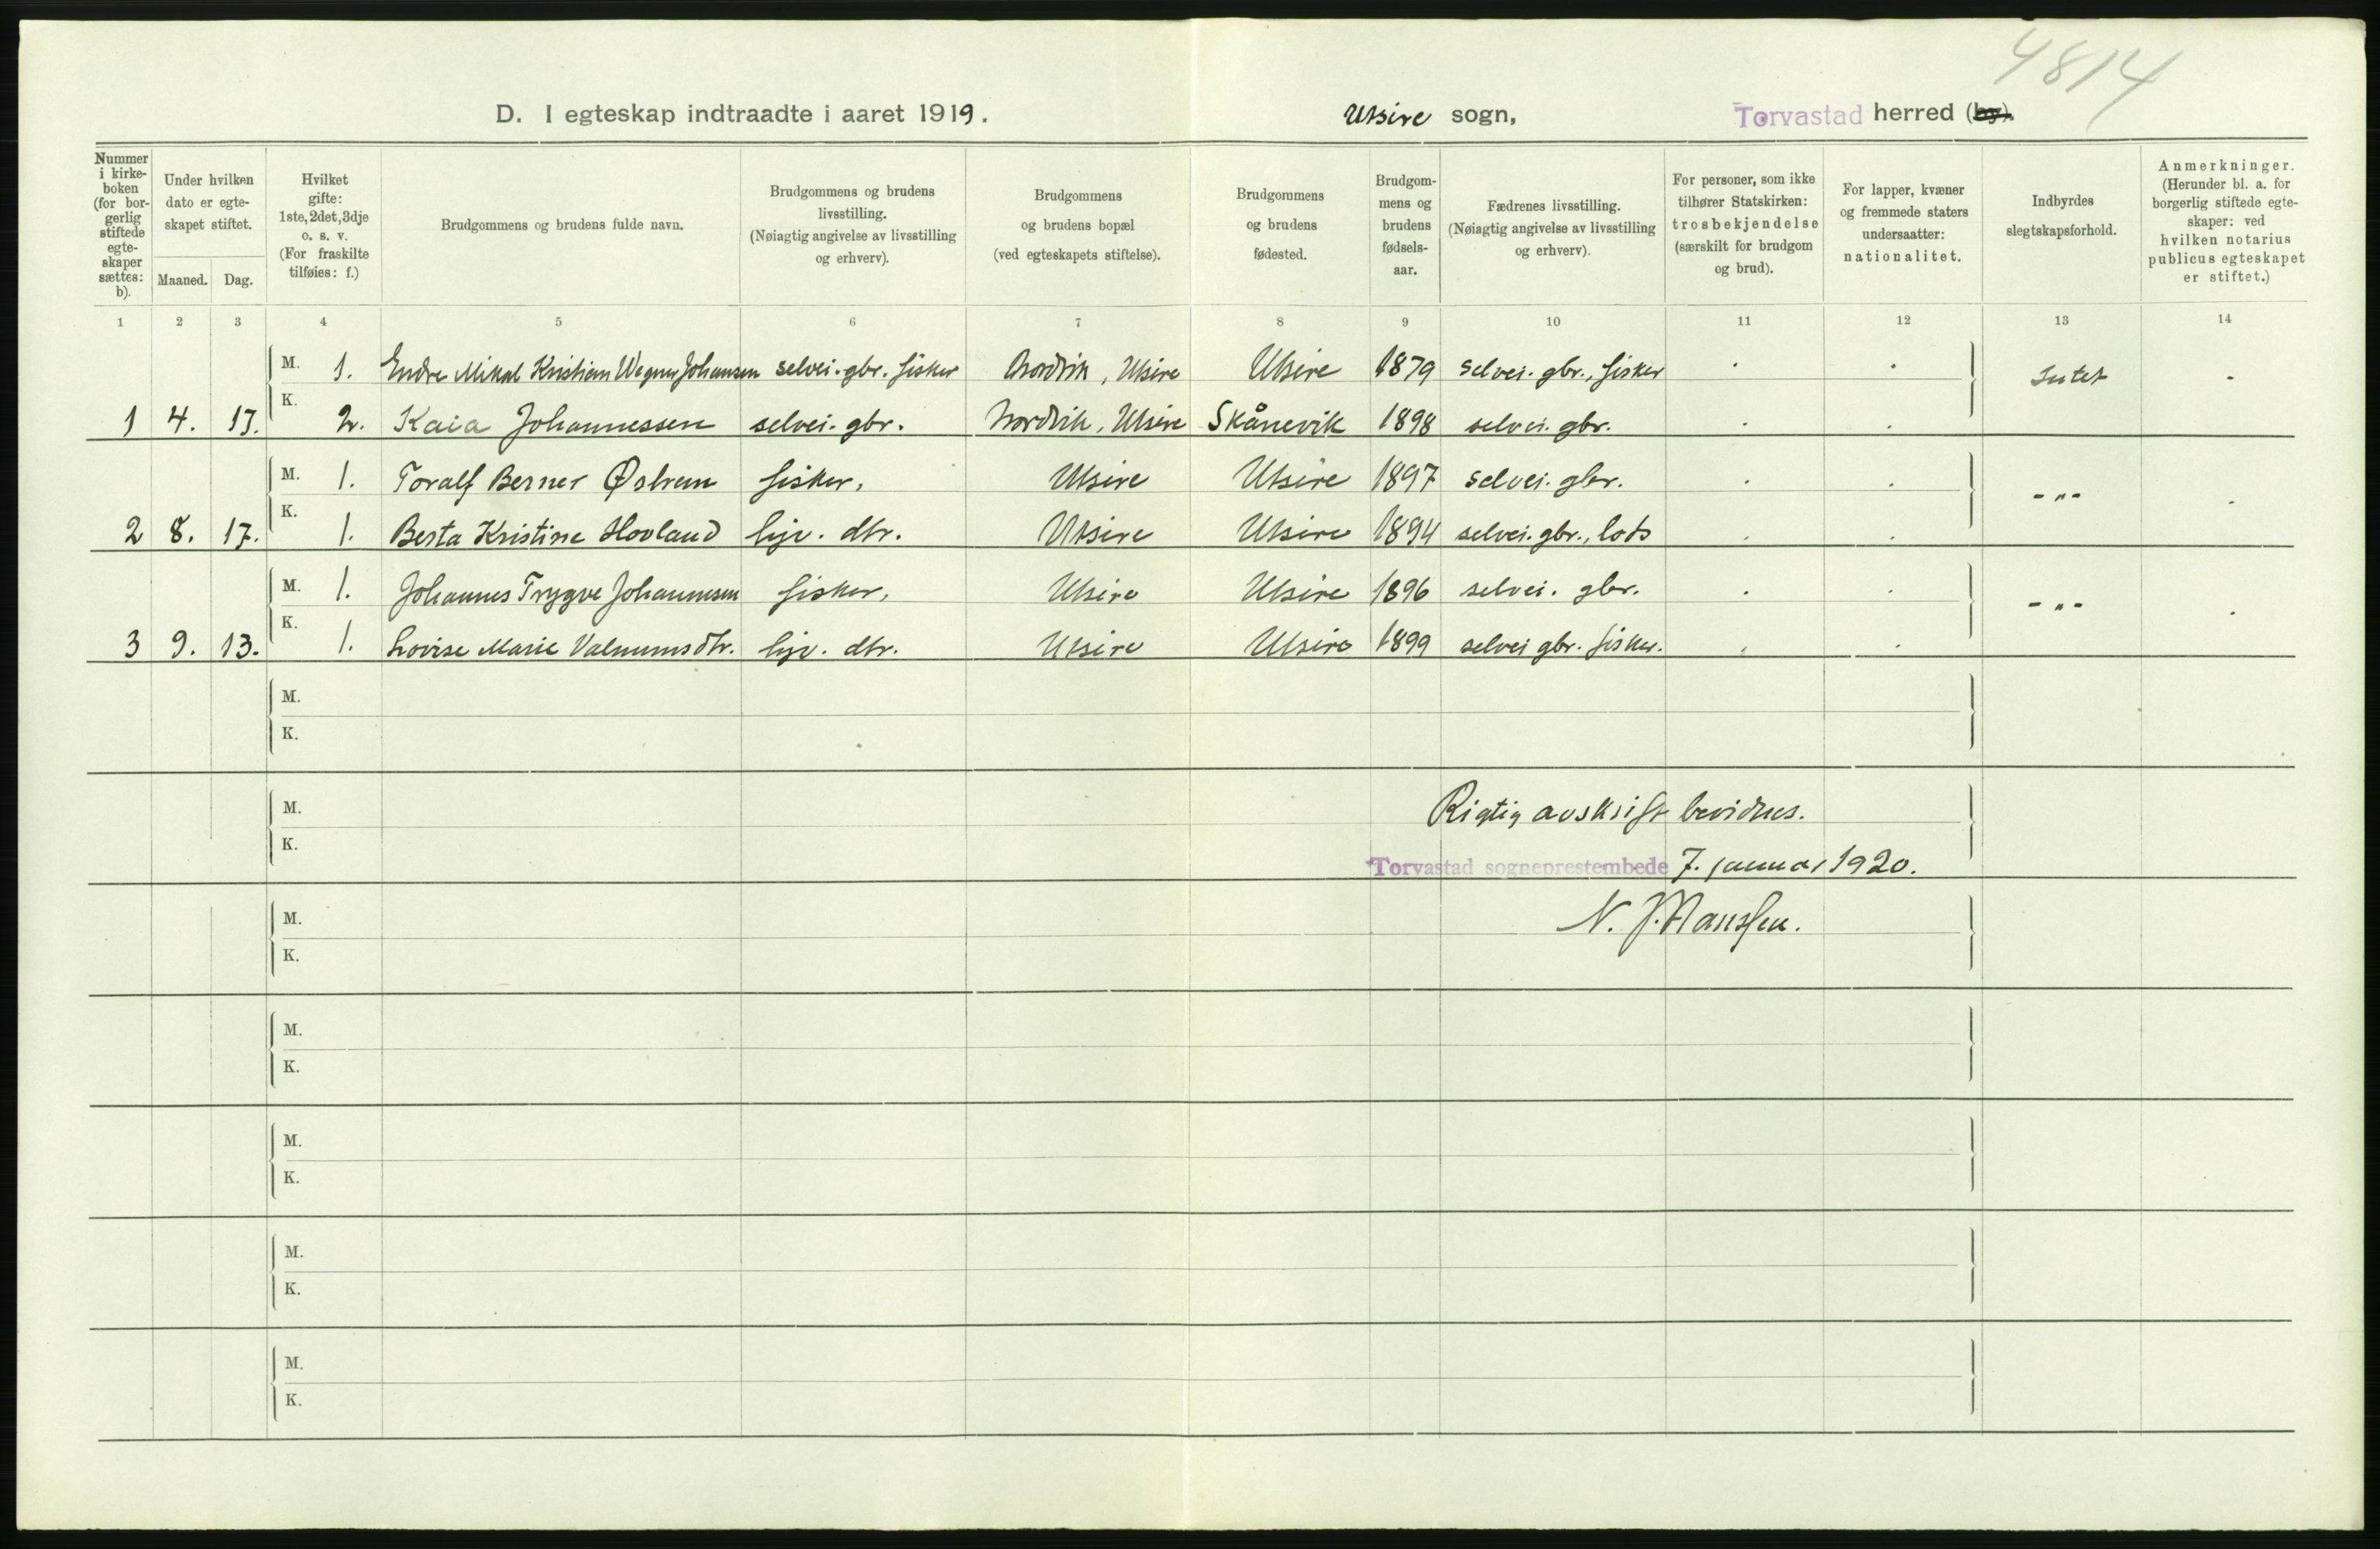 4814
D. I egteskap indtraadte i aaret 1919. Utsire sogn, Torvastad herred (by).
Nummer i kirke-boken (for bor-gerlig stiftede egte-skaper sættes: b).
Under hvilken dato er egte-skapet stiftet.
Maaned. Dag.
Hvilket gifte: 1ste, 2det, 3dje o. s. v. (For fraskilte tilføies: f.)
Brudgommens og brudens fulde navn.
Brudgommens og brudens livsstilling. (Nøiagtig angivelse av livsstilling og erhverv).
Brudgommens og brudens bopæl (ved egteskapets stiftelse).
Brudgommens og brudens fødested.
Brudgom-mens og brudens fødsels-aar.
Fædrenes livsstilling. (Nøiagtig angivelse av livsstilling og erhverv).
For personer, som ikke tilhører Statskirken: trosbekjendelse (særskilt for brudgom og brud).
For lapper, kvæner og fremmede staters undersaatter: nationalitet.
Indbyrdes slegtskapsforhold.
Anmerkninger. (Herunder bl. a. for borgerlig stiftede egte-skaper: ved hvilken notarius publicus egteskapet er stiftet.)
1 2 3 4 5 6 7 8 9 10 11 12 13 14
M. 1. Endre Mikal Kristian Wegner Johansen selvei. gbr. fisker Nordvik, Utsire Utsire 1879 selvei. gbr., fisker . . Intet -
1 4. 17. K. 2. Kaia Johannessen selvei. gbr. Nordvik, Utsire Skånevik 1898 selvei. gbr. . .
M. 1. Toralf Berner Østrem fisker, Utsire Utsire 1897 selvei. gbr. . . - " - .
2 8. 17. K. 1. Berta Kristine Hovland hjv. dtr. Utsire Utsire 1894 selvei. gbr., lods . .
M. 1. Johannes Trygve Johannesen fisker, Utsire Utsire 1896 selvei. gbr. . . - " - .
3 9. 13. K. 1. Lovise Marie Valnumsdtr. hjv. dtr. Utsire Utsire 1899 selvei gbr. fisker. . .
M.
K.
M. Rigtig avskrift bevidnes.
K.
Torvastad sogneprestembede 7. januar 1920.
M. N. J. Hanssen.
K.
M.
K.
M.
K.
M.
K.
M.
K.